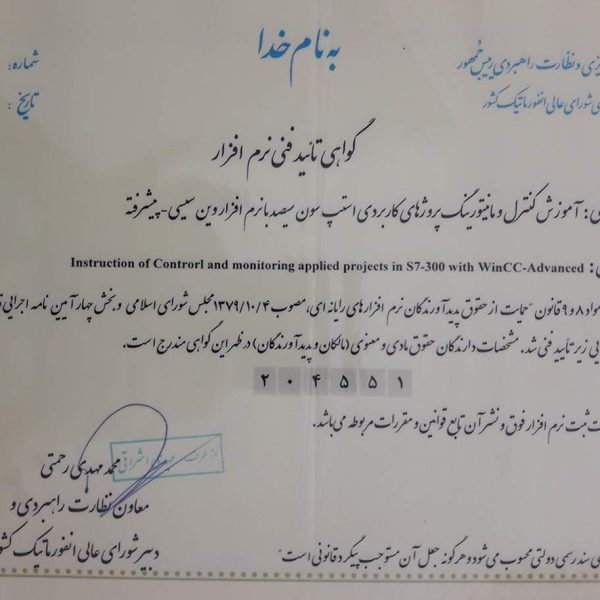 به نام خدا
ریزی و نظارت راهبردی رییس جمهور
ی شورای عالی انفورماتیک کشور
شماره:
تاریخ :
گواهی تائید فنی نرم افزار
ی: آموزش کنترل و مانیتورینگ پروژهای کاربردی استپ سون سیصد با نرم افزار وین سیسی-پیشرفته
ی: Instruction of Controrl and monitoring applied projects in S7-300 with WinCC-Advanced
مواد ۸ و ۹ قانون "حمایت از حقوق پدیدآورندگان نرم افزارهای رایانه ای، مصوب ۱۳۷۹/۱۰/۴ مجلس شورای اسلامی و بخش چهار آیین نامه اجرایی
یی زیر تایید فنی شد. مشخصات دارندگان حقوق مادی و معنوی (مالکان و پدیدآورندگان) در ظهر این گواهی مندرج است.
۲۰۴۵۵۱
ت ثبت نرم افزار فوق و نشر آن تابع قوانین و مقررات مربوطه می باشد.
از طرف
محمد مهدی رحمتی
معاون نظارت راهبردی و
دبیر شورای عالی انفورماتیک کشو
ی سند رسمی دولتی محسوب می شود و هرگونه جعل آن مستوجب پیگرد قانونی است"